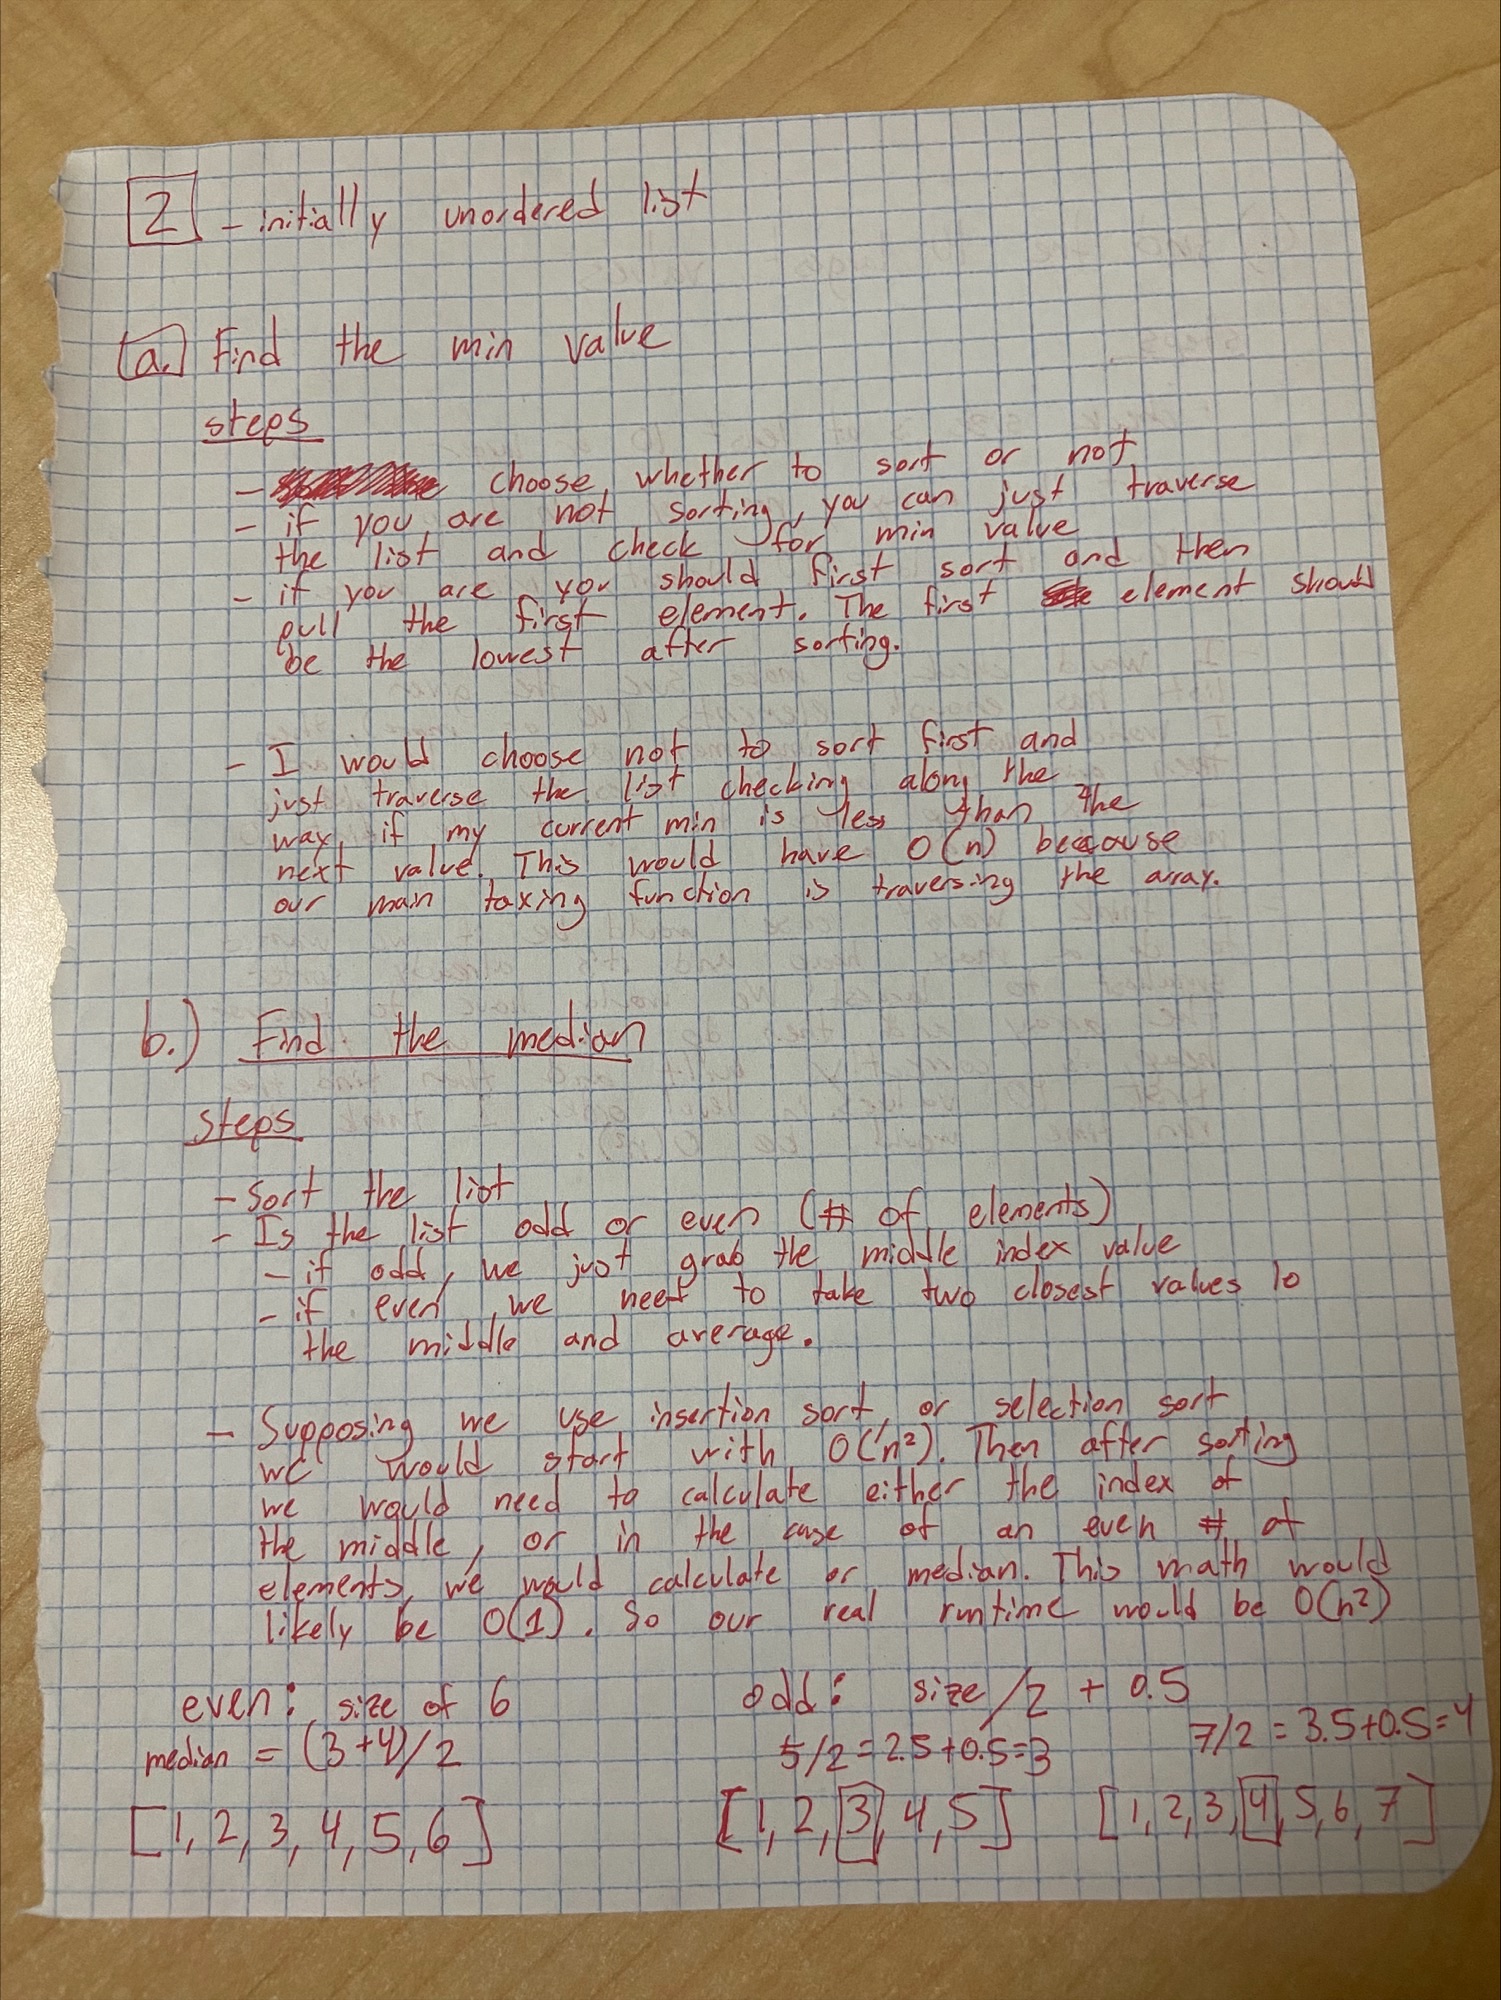 2 - initially unordered list
a.) Find the min value
steps
- choose whether to sort or not
- if you are not sorting, you can just traverse
the list and check for min value
- if you are you should first sort and then
pull the first element. The first element should
be the lowest after sorting.
- I would choose not to sort first and
just traverse the list checking along the
way if my current min is less than the
next value. This would have O(n) because
our main taxing function is traversing the array.
b.) Find the median
steps
- Sort the list
- Is the list odd or even (# of elements)
- if odd, we just grab the middle index value
- if even, we need to take two closest values to
the middle and average.
- Supposing we use insertion sort, or selection sort
we would start with O(n²). Then after sorting
we would need to calculate either the index of
the middle, or in the case of an even # of
elements, we would calculate or median. This math would
likely be O(1). So our real runtime would be O(n²)
even: size of 6
median = (3+4)/2
[1, 2, 3, 4, 5, 6]
odd: size/2 + 0.5
5/2 = 2.5+0.5=3
7/2 = 3.5+0.5=4
[1, 2, 3, 4, 5]
[1, 2, 3, 4, 5, 6, 7]